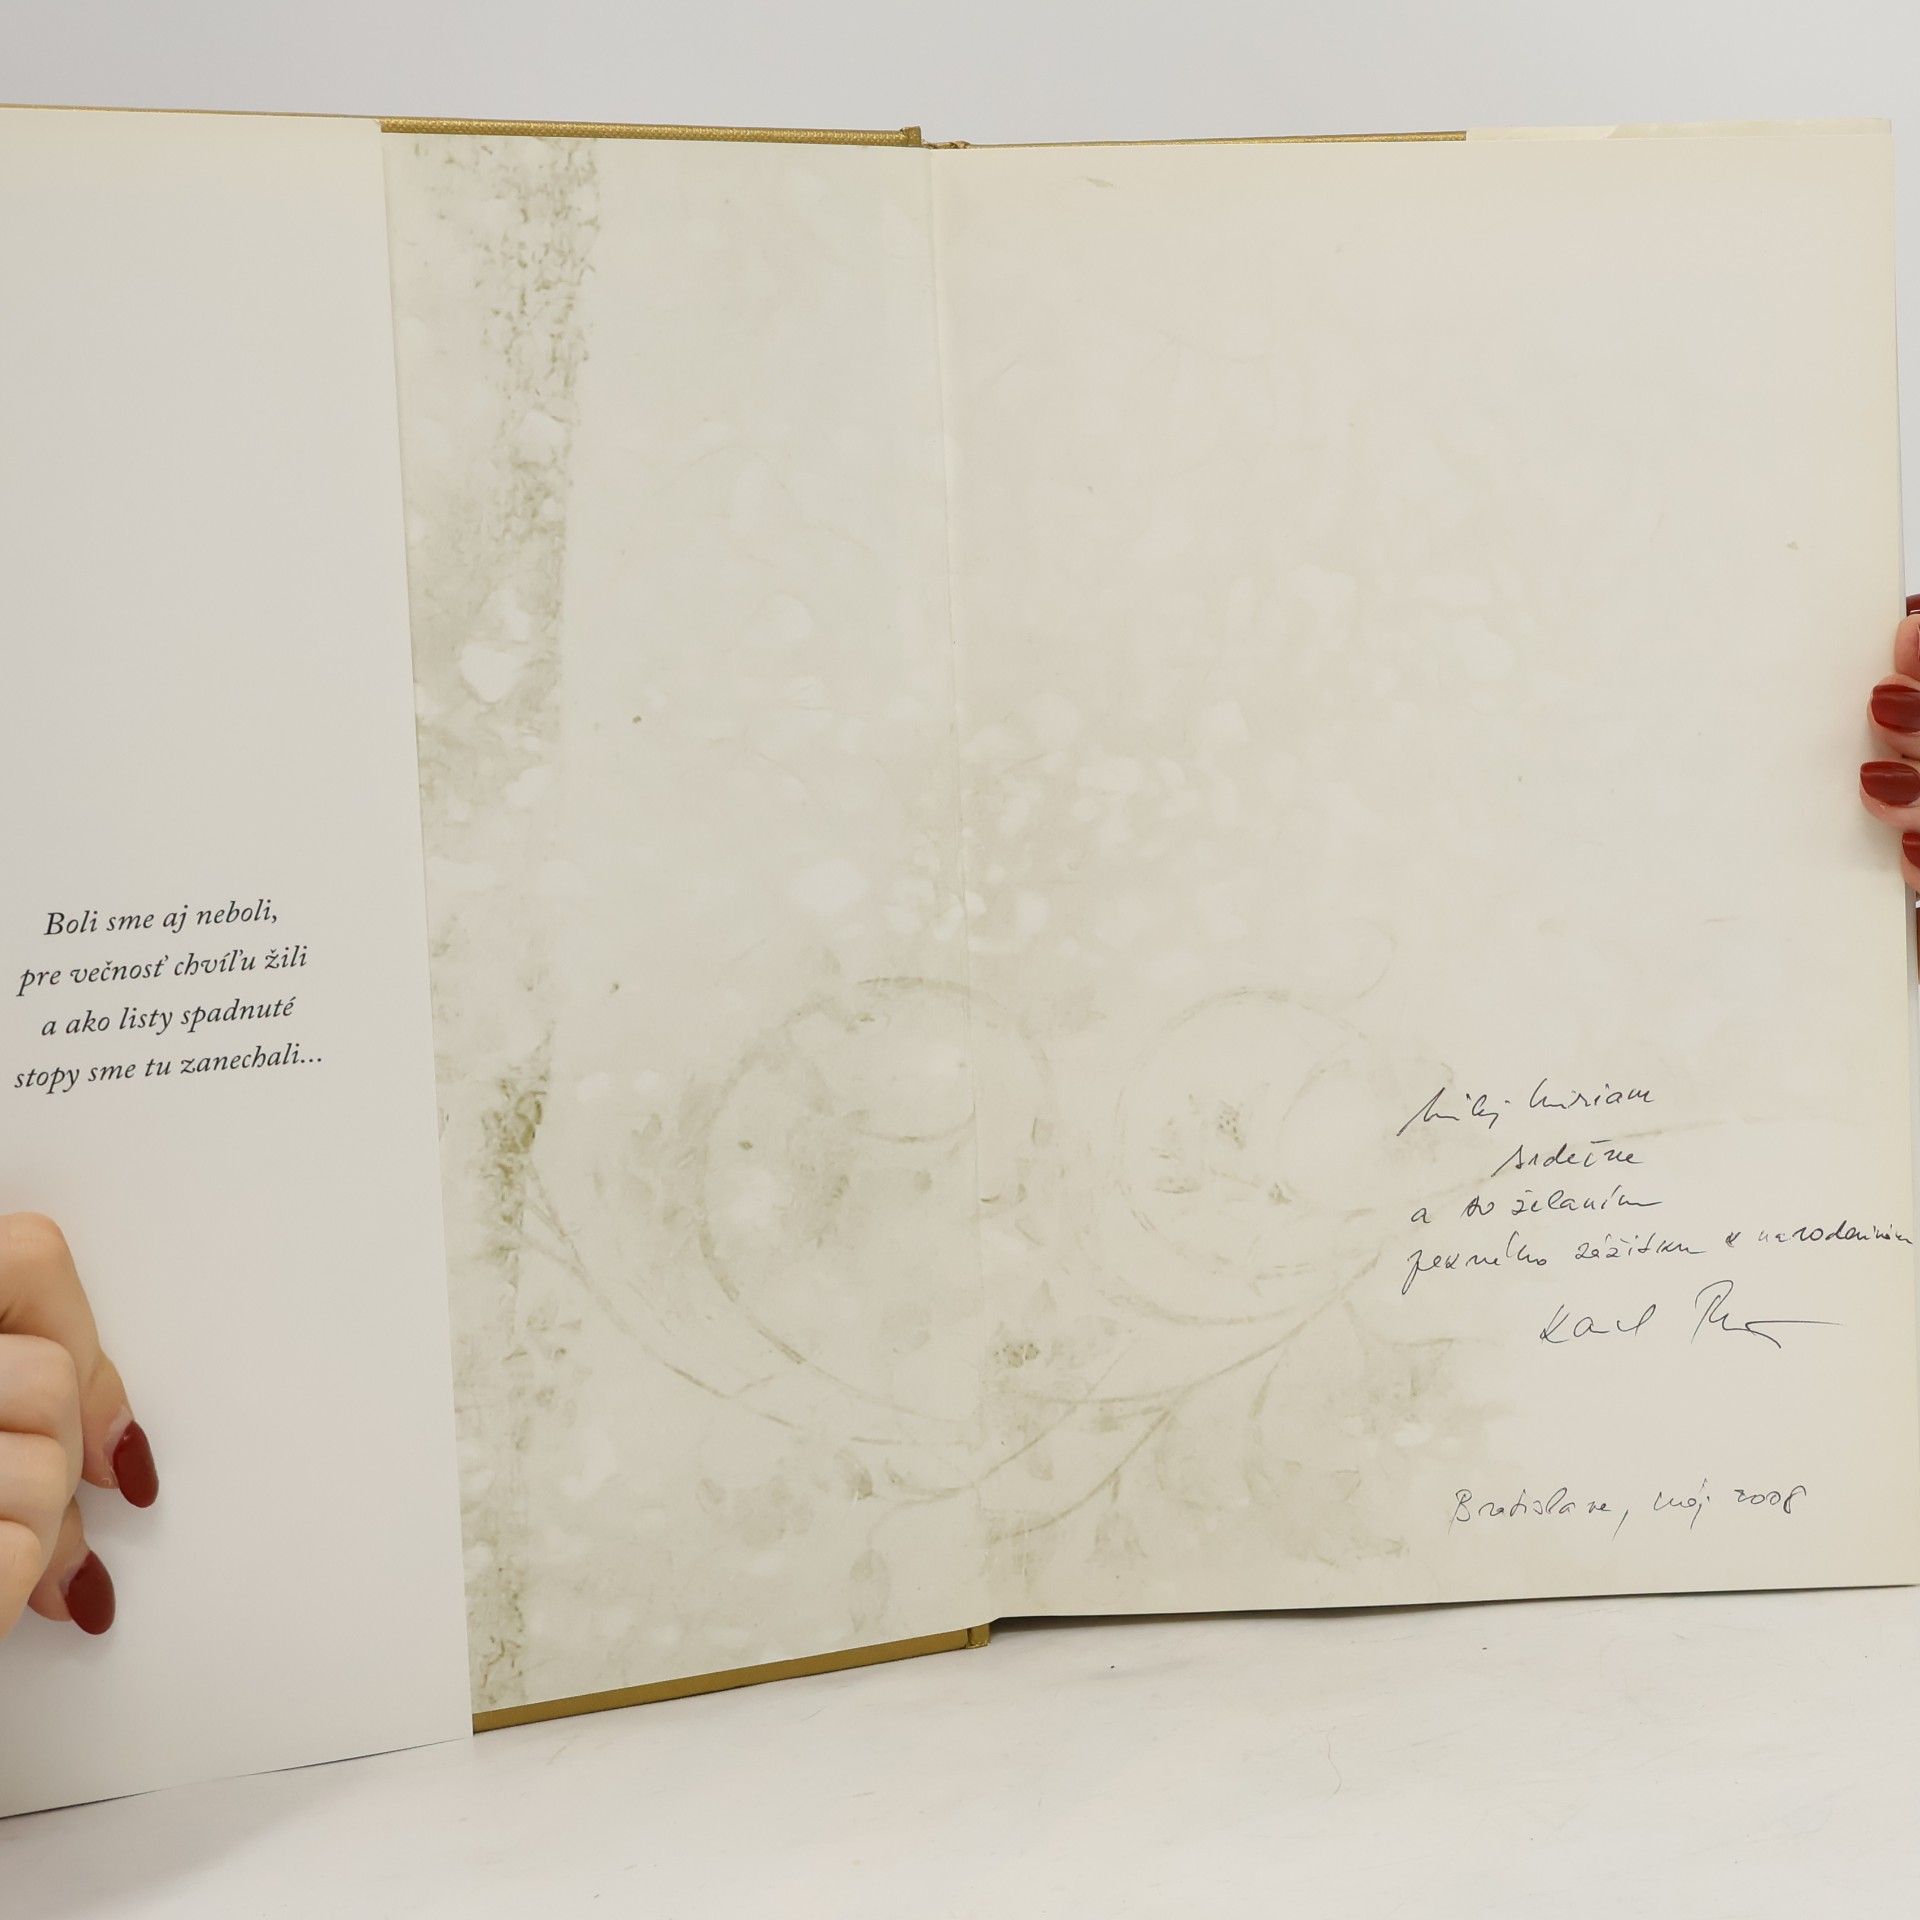 Boli sme aj neboli,
pre večnosť chvíľu žili
a ako listy spadnuté
stopy sme tu zanechali...
Milej Miriam
srdečne
a so želaním
pekného zážitku k narodeninám
Karel
Bratislava, máj 2008